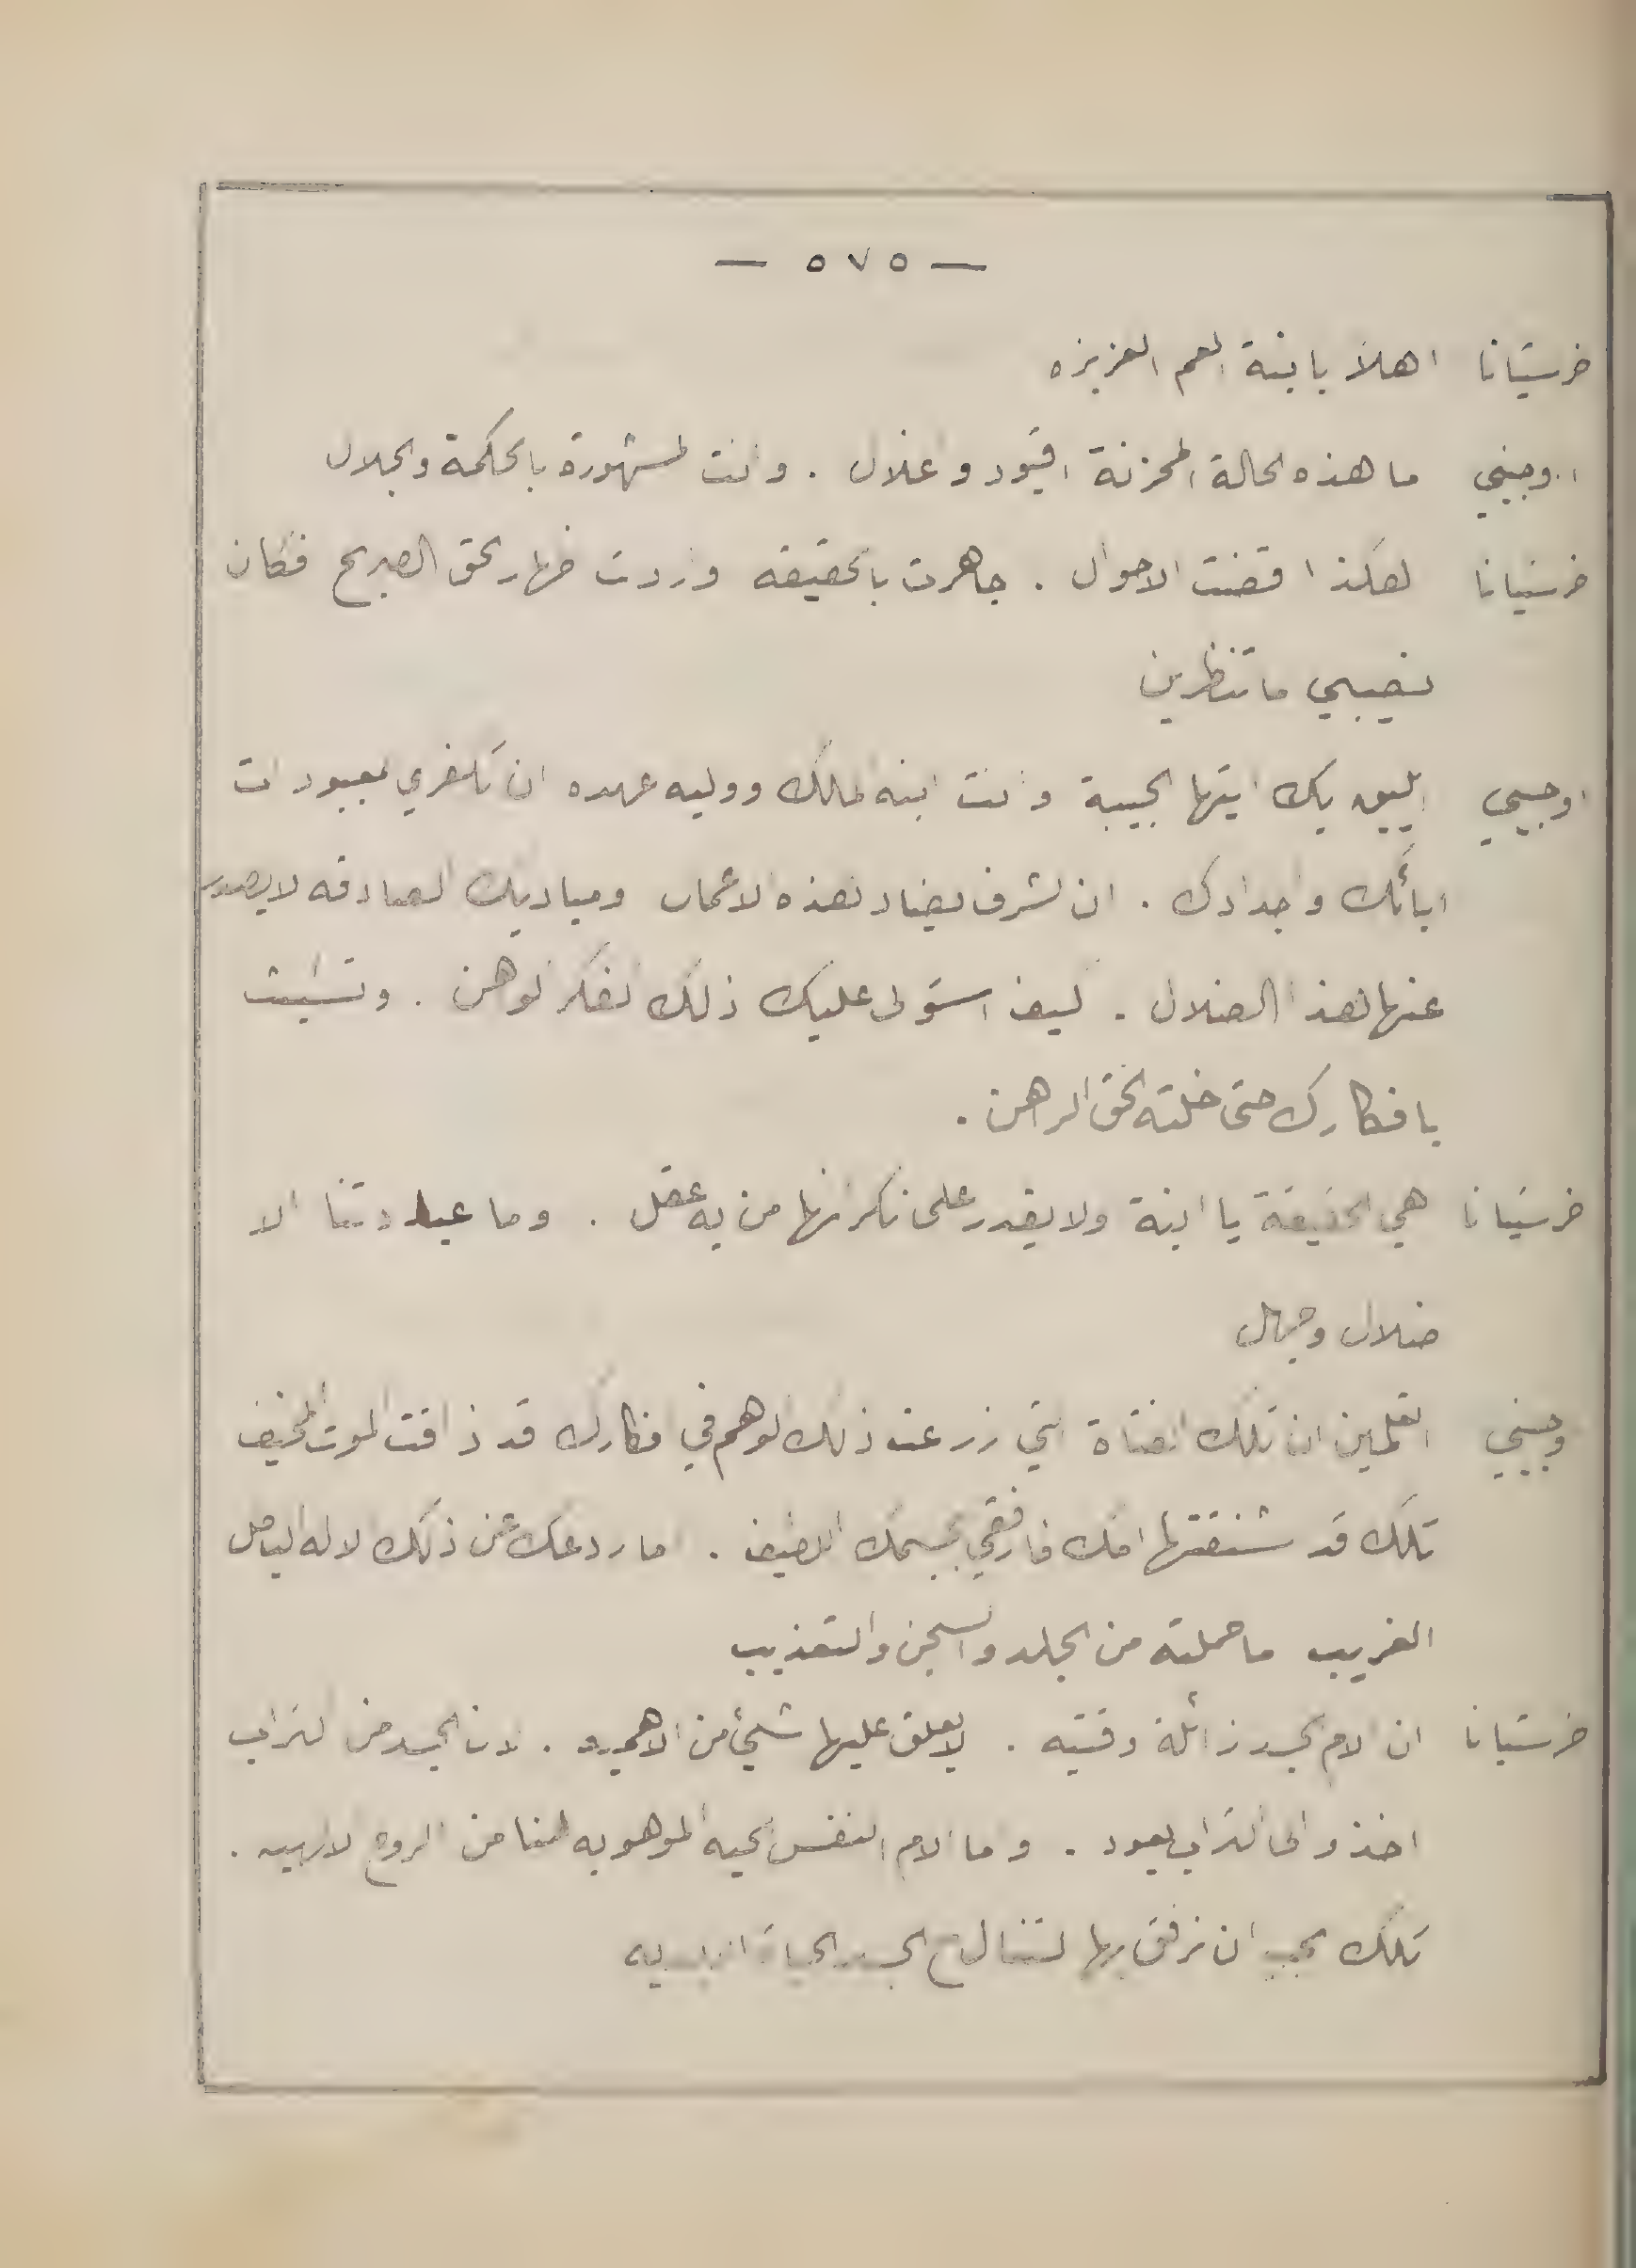 — ٥٧٥ —
خرستيانا اهلاً بابنة العم العزيزه
اوجيني ما هذه الحالة المحزنة اقيود واغلال . وانت المشهورة بالحكمة والجلال
خرستيانا هكذا اقضت الاحوال . جاهرت بالحقيقه واردت اظهار الحق الصريح فكان
نصيبي ما تنظرين
اوجيني ايليق بك ايتها الحبيبة وانت ابنه الملك ووليه عهده ان تكفري بمعبودات
ابائك واجدادك . ان الشرف يضاد هذه الاعمال ومباديك الصادقه لا يصدر
عنها هذا الضلال . كيف استولى عليك ذلك الفكر الوهن . وتشبث
بافكارك حتى خلته الحق الراهن .
خرستيانا هي الحقيقة يا ابنة ولا يقدر على نكرانها من به عقل . وما عبادتنا الا
ضلال وجهل
وجيني اتعلمين ان تلك الفتاة التي زرعت ذلك الوهم في افكارك قد ذاقت الموت المخيف
تلك قد شنقتها امك فارفقي بجسمك اللطيف . اما ردعك عن ذلك الاله
الغريب ما حملته من الجلد والسجن والتعذيب
خرستيانا ان الام الجسد زائلة وقتيه . لا يعلق عليها شيئ من الاهميه . لان الجسد من التراب
اخذ والى التراب يعود . وما الام النفس الحيه الموهوبه لنا من الروح الالهيه .
تلك يجب ان نرفق بها لتنال مع الجسد الحياة الابديه